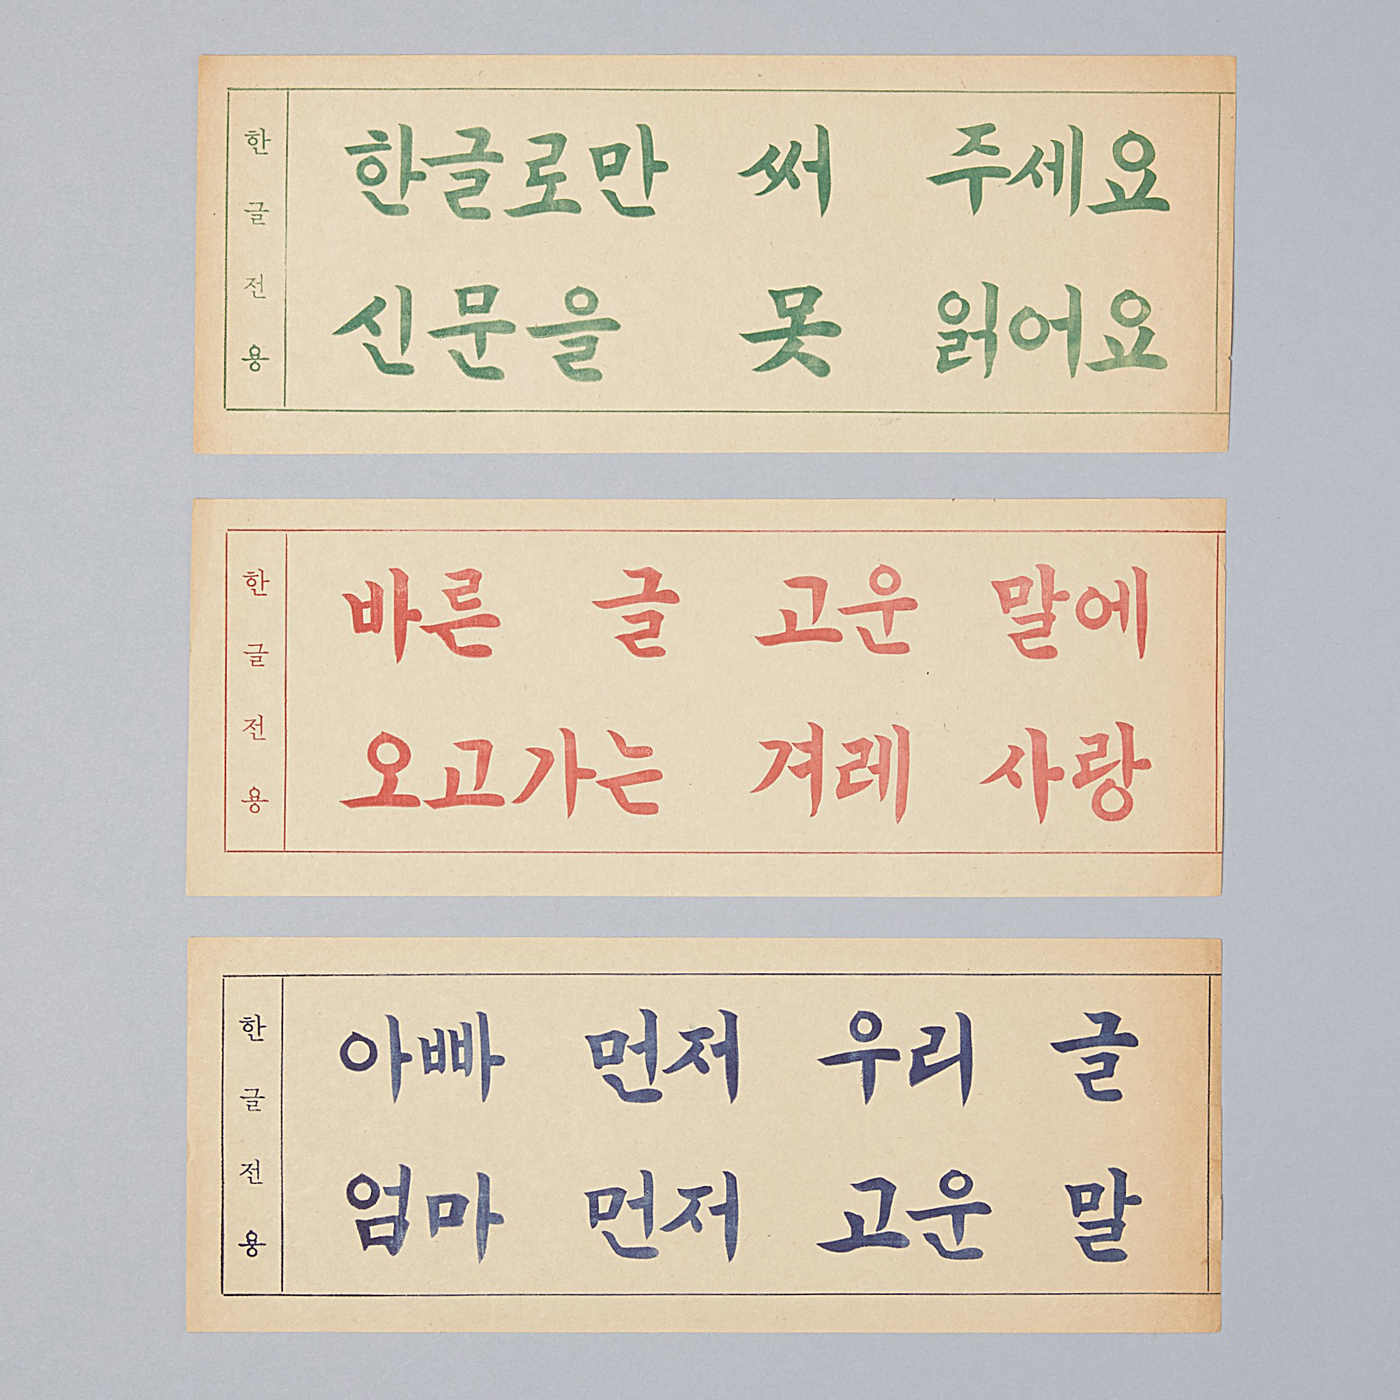 한글전용
한글로만 써 주세요
신문을 못 읽어요
한글전용
바른 글 고운 말에
오고가는 겨레 사랑
한글전용
아빠 먼저 우리 글
엄마 먼저 고운 말